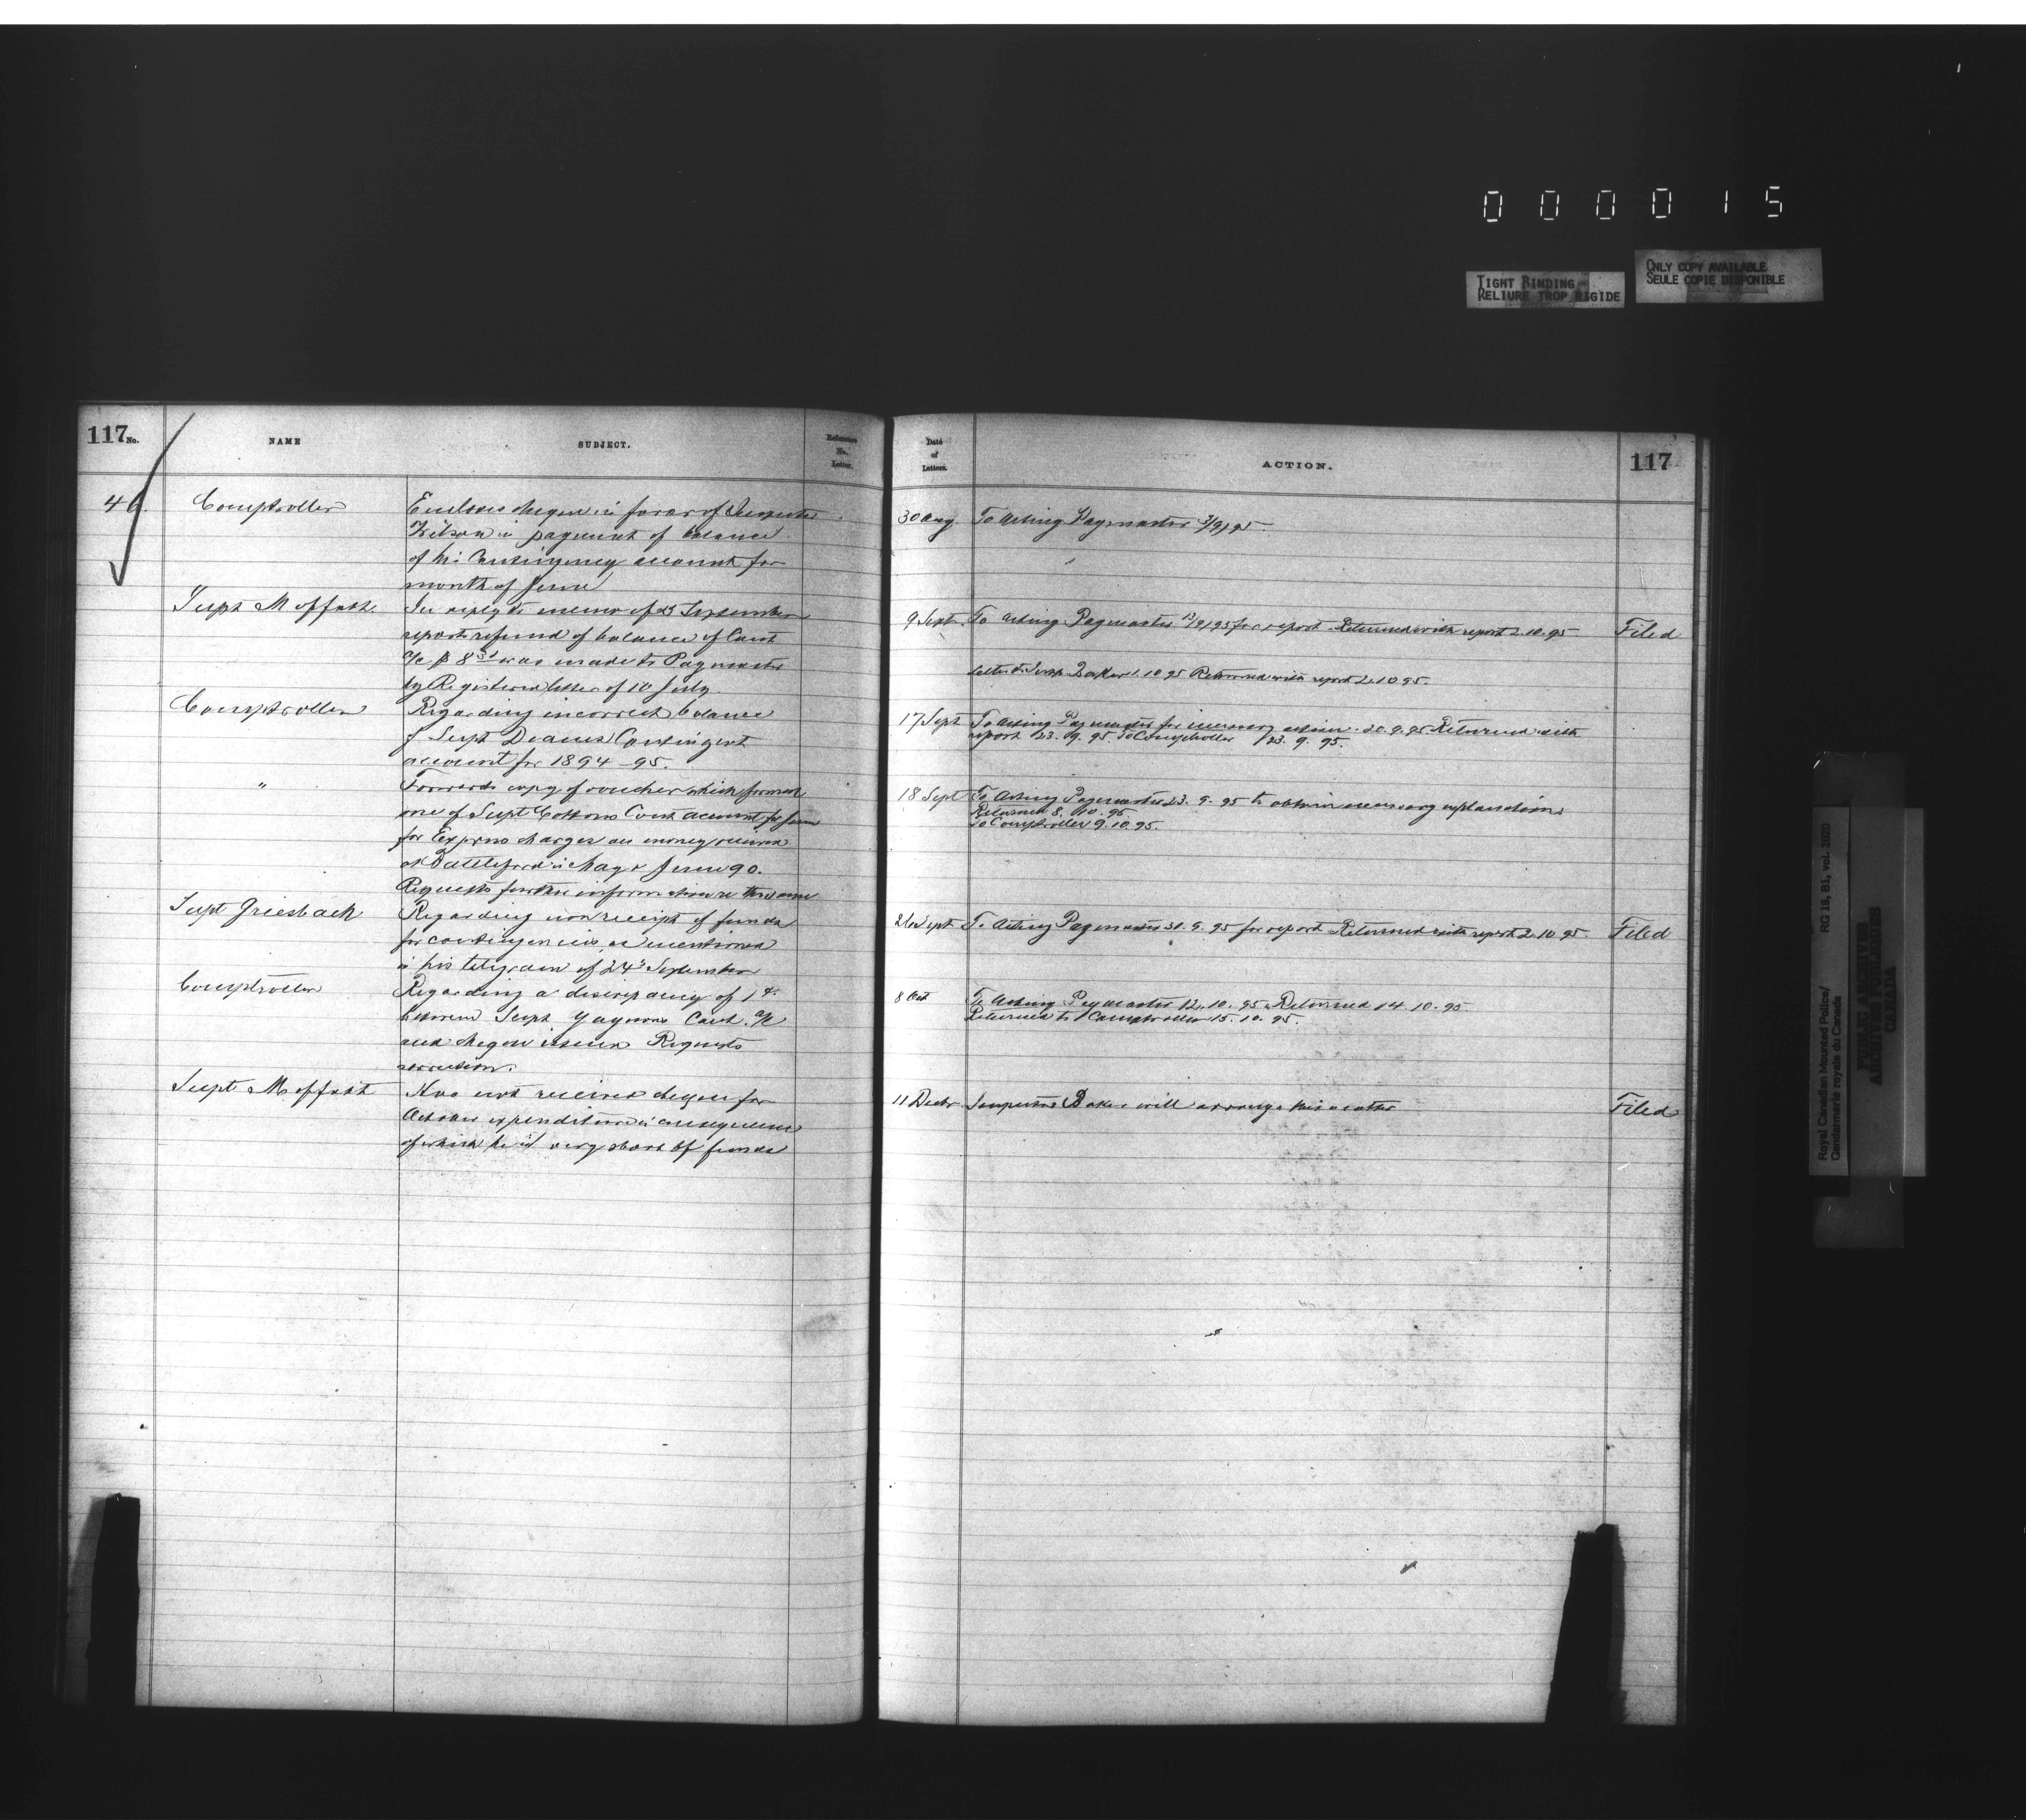 000015
TIGHT BINDING
RELIURE TROP RIGIDE
ONLY COPY AVAILABLE
SEULE COPIE DISPONIBLE
117 No. NAME SUBJECT. Reference No. Letter.
46. Comptroller Encloses cheque in favor of Inspector
Wilson in payment of balance
of his Contingency account for
month of June
Supt Moffatt In reply to memo of 23 September
reports refund of balance of Cont
a/c $ 8 was made to Paymaster
by Registered letter of 10 July.
Comptroller Regarding incorrect balance
of Supt Deanes Contingent
account for 1894-95.
" Forwards copy of voucher which formed
one of Supt Cottons Cont account for June
for Express charges on money received
at Battleford in May & June 90.
Requests further information re the same
Supt Griesbach Regarding non receipt of funds
for contingencies as mentioned
in his telegram of 24th September
Comptroller Regarding a discrepancy of 1¢
between Supt Gagnons Cont. a/c
and cheque issued Requests
correction.
Supt Moffatt Has not received cheque for
October expenditure in consequence
of which he is very short of funds
Date of Letters. ACTION. 117
30 Aug To Acting Paymaster 3/9/95.
9 Sept. To Acting Paymaster 12/9/95 for report. Returned with report 2.10.95 Filed
Baker 1.10.95 Returned with report 2.10.95.
17 Sept To Acting Paymaster for necessary action. 20.9.95 Returned with
report 23.9.95. To Comptroller 23.9.95.
18 Sept To Acting Paymaster 23.9.95 to obtain necessary explanation
Returned 8.10.95
To Comptroller 9.10.95.
26 Sept To Acting Paymaster 30.9.95 for report Returned with report 2.10.95. Filed
8 Oct To Acting Paymaster 12.10.95. Returned 14.10.95
Returned to Comptroller 15.10.95.
11 Decbr Inspector Baker will arrange this matter Filed
Royal Canadian Mounted Police/
Gendarmerie royale du Canada
RG 18, B1, vol. 2020
PUBLIC ARCHIVES
ARCHIVES PUBLIQUES
CANADA